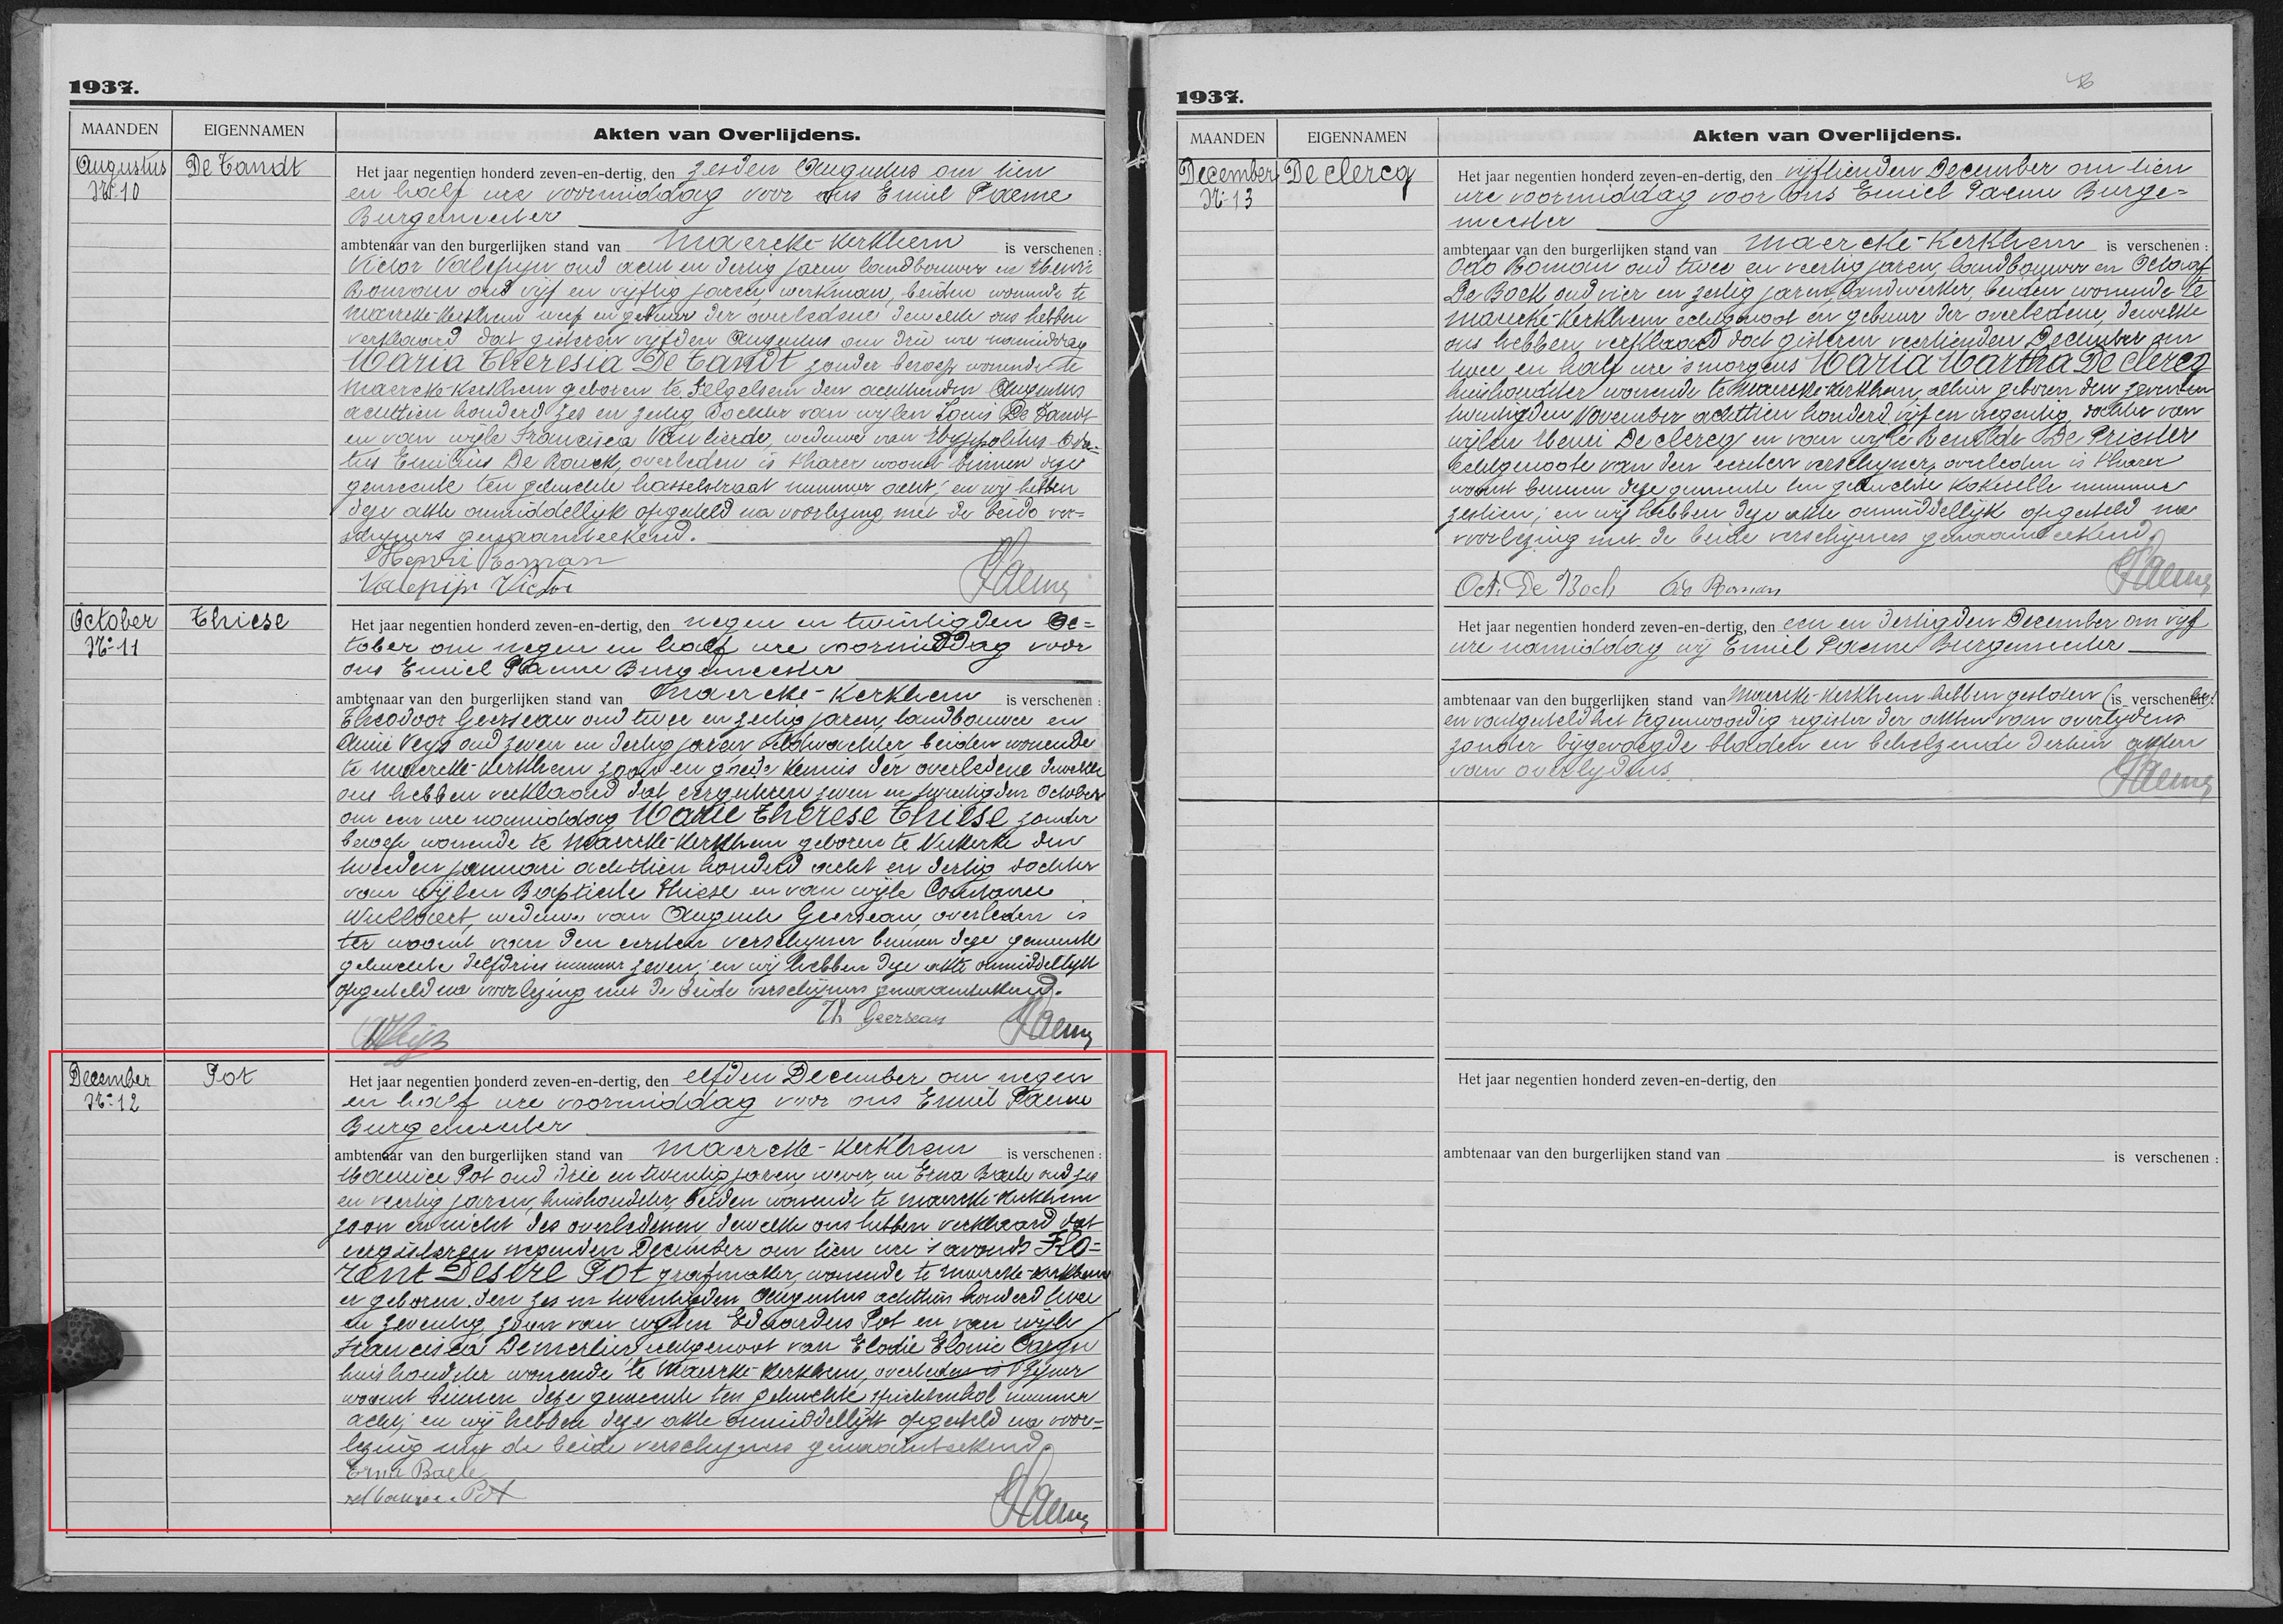 1937.
MAANDEN
EIGENNAMEN
Akten van Overlijdens.
Augustus
No 10
De Tandt
Het jaar negentien honderd zeven-en-dertig, den zesden Augustus om tien
en half ure voormiddag voor ons Emiel Paeme
Burgemeester
ambtenaar van den burgerlijken stand van Maercke-Kerkhem is verschenen :
Victor Valepijn oud acht en dertig jaren landbouwer en Henri
Roman oud vijf en vijftig jaren, werkman, beiden wonende te
Maercke-Kerkhem neef en gebuur der overledene dewelke ons hebben
verklaard dat gisteren vijfden Augustus om drie ure namiddag
Maria Theresia De Tandt zonder beroep wonende te
Maercke-Kerkhem geboren te Pelgelsem den achttienden Augustus
achttien honderd zes en zestig dochter van wijlen Louis De Tandt
en van wijle Francisca Van lierde, weduwe van Hyppolitus
Emilius De Ronck, overleden is t'harer woonst binnen deze
gemeente ten gehuchte hasselstraat nummer acht; en wij hebben
deze akte onmiddellijk opgesteld na voorlezing met de beide ver-
schijners genaamteekend.
Henri Roman
Valepijn Victor
Paeme
October
No 11
Thiese
Het jaar negentien honderd zeven-en-dertig, den negen en twintigden Oc=
tober om negen en half ure voormiddag voor
ons Emiel Paeme Burgemeester
ambtenaar van den burgerlijken stand van Maercke-Kerkhem is verschenen :
Theodoor Geerseau oud twee en zestig jaren, landbouwer en
Aimé Veys oud zeven en dertig jaren veldwachter beiden wonende
te Maercke-Kerkhem zoon en goede kennis der overledene dewelke
ons hebben verklaard dat eergisteren zeven en twintigden October
om een ure namiddag Marie Thérèse Thiese zonder
beroep wonende te Maercke-Kerkhem geboren te Nukerke den
tweeden januari achttien honderd acht en dertig dochter
van wijlen Baptiste Thiese en van wijle Constance
Wullaert, weduwe van Auguste Geerseau, overleden is
ter woonst van den eersten verschijner binnen deze gemeente
gehuchte nummer zeven; en wij hebben deze akte onmiddellijk
opgesteld na voorlezing met de beide verschijners genaamteekend.
Th Geerseau
Paeme
December
No 12
Pot
Het jaar negentien honderd zeven-en-dertig, den elfden December om negen
en half ure voormiddag voor ons Emiel Paeme
Burgemeester
ambtenaar van den burgerlijken stand van Maercke-Kerkhem is verschenen :
Maurice Pot oud drie en twintig jaren, wever, en Erna Baele oud zes
en veertig jaren, huishoudster, beiden wonende te Maercke-Kerkhem
zoon en nicht des overledenen, dewelke ons hebben verklaard dat
eergisteren negenden December om tien ure 's avonds Flo=
rent Désiré Pot grafmaker, wonende te Maercke-Kerkhem
er geboren den zes en twintigden Augustus achttien honderd twee
en zeventig, zoon van wijlen Eduardus Pot en van wijle
Francisca Demerlier echtgenoot van Elodie Elonie Caryn
huishoudster wonende te Maercke-Kerkhem, overleden is t'zijner
woonst binnen deze gemeente ten gehuchte nummer
acht; en wij hebben deze akte onmiddellijk opgesteld na voor-
lezing met de beide verschijners genaamteekend.
Erna Baele
Maurice Pot
Paeme
1937.
MAANDEN
EIGENNAMEN
Akten van Overlijdens.
December
No 13
De clercq
Het jaar negentien honderd zeven-en-dertig, den vijftienden December om tien
ure voormiddag voor ons Emiel Paeme Burge=
meester
ambtenaar van den burgerlijken stand van Maercke-Kerkhem is verschenen :
Odo Roman oud twee en veertig jaren, landbouwer en Octaaf
De Bock oud vier en zestig jaren, landwerker, beiden wonende te
Maercke-Kerkhem echtgenoot en gebuur der overledene, dewelke
ons hebben verklaard dat gisteren veertienden December om
twee en half ure 's morgens Maria Martha De clercq
huishoudster wonende te Maercke-Kerkhem, alhier geboren den zeven en
twintigden November achttien honderd vijf en negentig dochter van
wijlen Henri De clercq en van wijle Renilde De Priester
echtgenoote van den eersten verschijner, overleden is t'harer
woonst binnen deze gemeente ten gehuchte Kokerelle nummer
zestien; en wij hebben deze akte onmiddellijk opgesteld na
voorlezing met de beide verschijners genaamteekend.
Oct. De Bock Odo Roman
Paeme
Het jaar negentien honderd zeven-en-dertig, den een en dertigden December om vijf
ure namiddag wij Emiel Paeme Burgemeester
ambtenaar van den burgerlijken stand van Maercke-Kerkhem hebben gesloten (is verschenen :
en vastgesteld het tegenwoordig register der akten van overlijdens
zonder bijgevoegde bladen en behelzende dertien akten
van overlijdens.
Paeme
Het jaar negentien honderd zeven-en-dertig, den
ambtenaar van den burgerlijken stand van is verschenen :